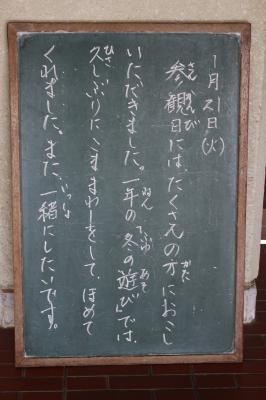 1月21日(火)
参観日には、たくさんの方におこし
いただきました。一年の「冬の遊び」では、
久しぶりにこままわしをして、ほめて
くれました。また、一緒にしたいです。